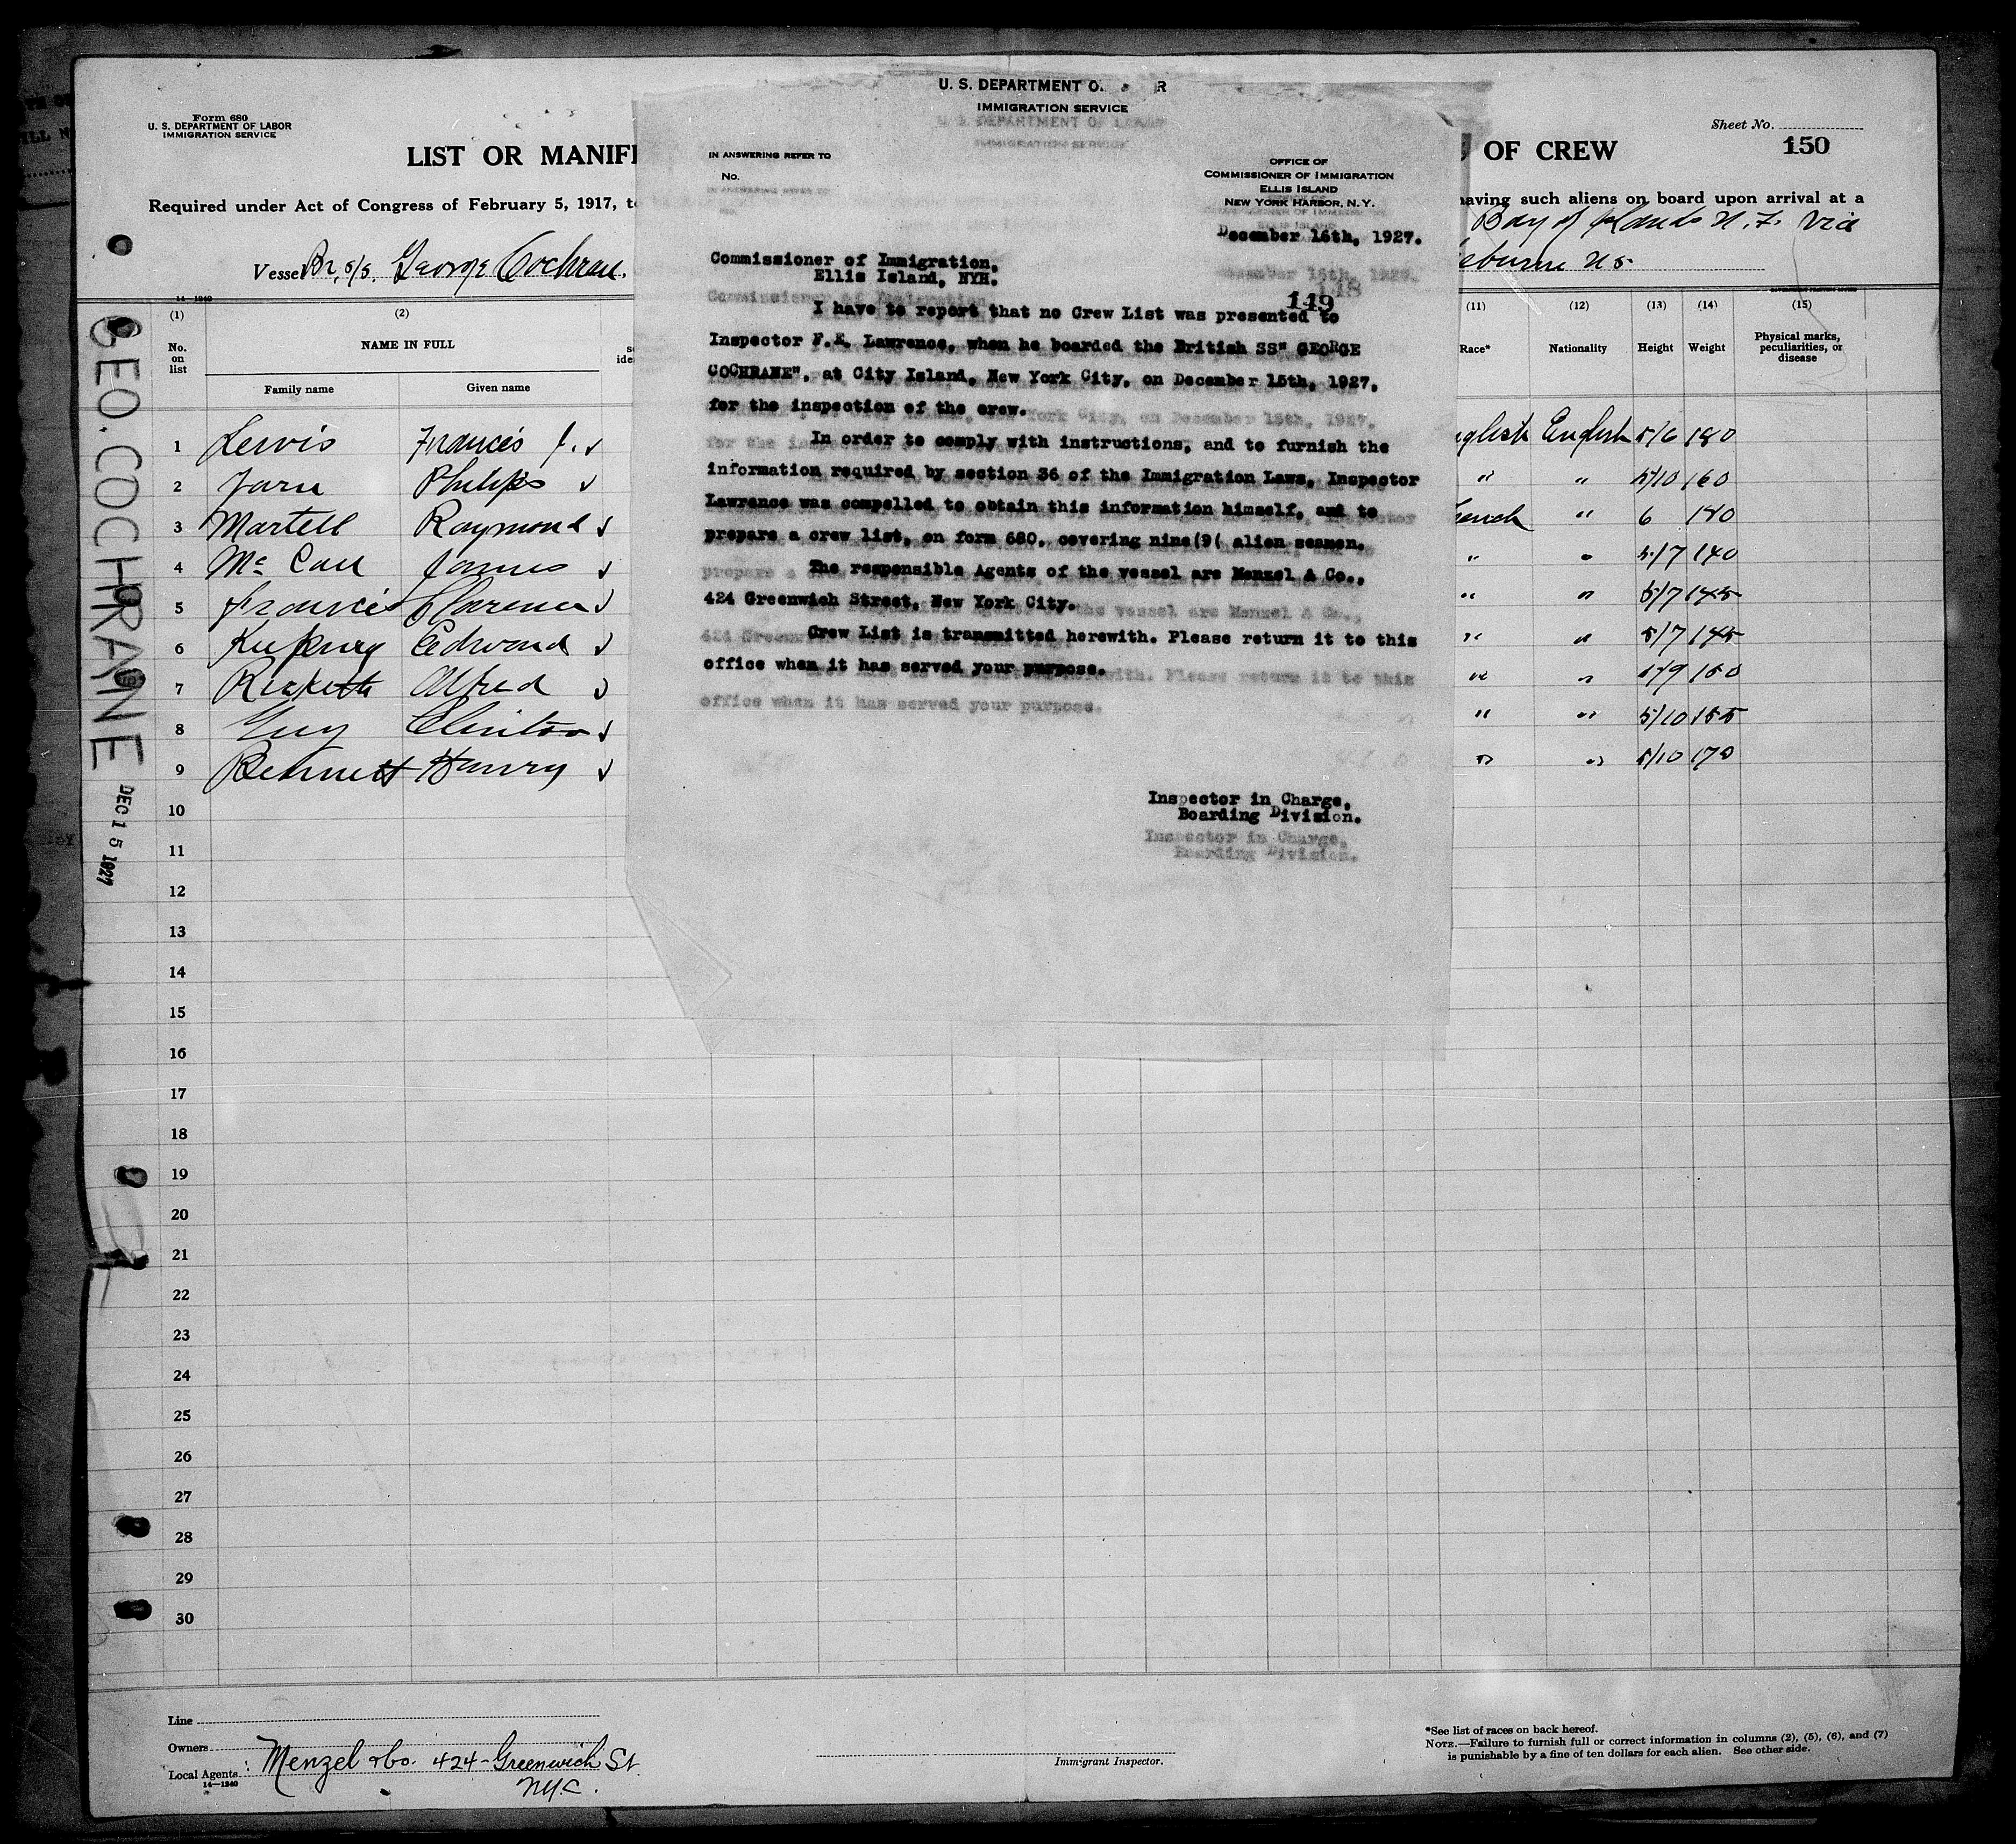 Form 680
U. S. DEPARTMENT OF LABOR
IMMIGRATION SERVICE
LIST OR MANIF
OF CREW
Sheet No.
150
Required under Act of Congress of February 5, 1917, t
having such aliens on board upon arrival at a
Vessel Br. s/s. George Cochran.
Bay of Islands N. F. via
eburne N S
U. S. DEPARTMENT O R
IMMIGRATION SERVICE
U. S. DEPARTMENT OF LABOR
IMMIGRATION SERVICE
IN ANSWERING REFER TO
No.
IN ANSWERING REFER TO
OFFICE OF
COMMISSIONER OF IMMIGRATION
ELLIS ISLAND
NEW YORK HARBOR, N. Y.
December 16th, 1927.
Commissioner of Immigration,
Ellis Island, NYH.
149
I have to report that no Crew List was presented to
Inspector F.E. Lawrence, when he boarded the British SS" GEORGE
COCHRANE", at City Island, New York City, on December 15th, 1927,
for the inspection of the crew.
In order to comply with instructions, and to furnish the
information required by section 36 of the Immigration Laws, Inspector
Lawrence was compelled to obtain this information himself, and to
prepare a crew list, on form 680, covering nine(9( alien seamen.
The responsible Agents of the vessel are Menzel & Co.,
424 Greenwich Street, New York City.
Crew List is transmitted herewith. Please return it to this
office when it has served your purpose.
office when it has served your purpose.
Inspector in Charge,
Boarding Division.
Inspector in Charge,
Boarding Division.
14—1240
(1) (2) (11) (12) (13) (14) (15)
No. on list
NAME IN FULL
Family name Given name
Race* Nationality Height Weight Physical marks, peculiarities, or disease
1 Lewis Francis J. English 5/6 180
2 Philips " " 5/10 160
3 Martell Raymond " 6 140
4 James " " 5/7 140
5 Francis Clarence " " 5/7 145
6 Edward " " 5/7 145
7 Alfred " " 5/9 150
8 Guy Clinton " " 5/10 155
9 Bennett Henry " " 5/10 170
10
11
12
13
14
15
16
17
18
19
20
21
22
23
24
25
26
27
28
29
30
GEO. COCHRANE
DEC 15 1927
Line
Owners
Local Agents : Menzel & Co. 424 - Greenwich St.
N.Y.C.
14—1240
Immigrant Inspector.
*See list of races on back hereof.
NOTE.—Failure to furnish full or correct information in columns (2), (5), (6), and (7)
is punishable by a fine of ten dollars for each alien. See other side.